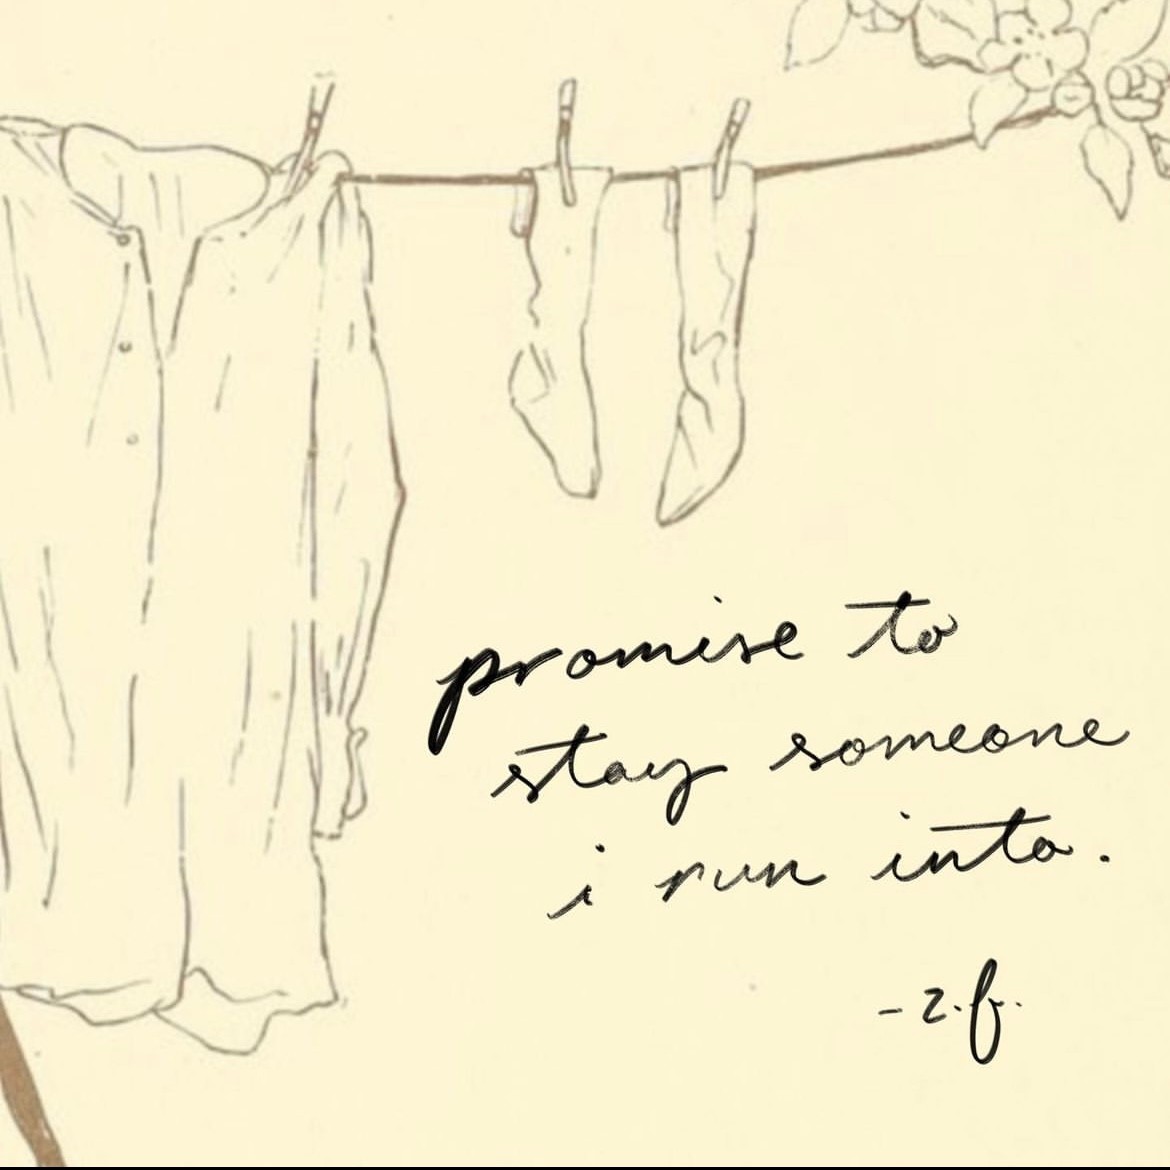 promise to
stay someone
i run into.
- z.f.